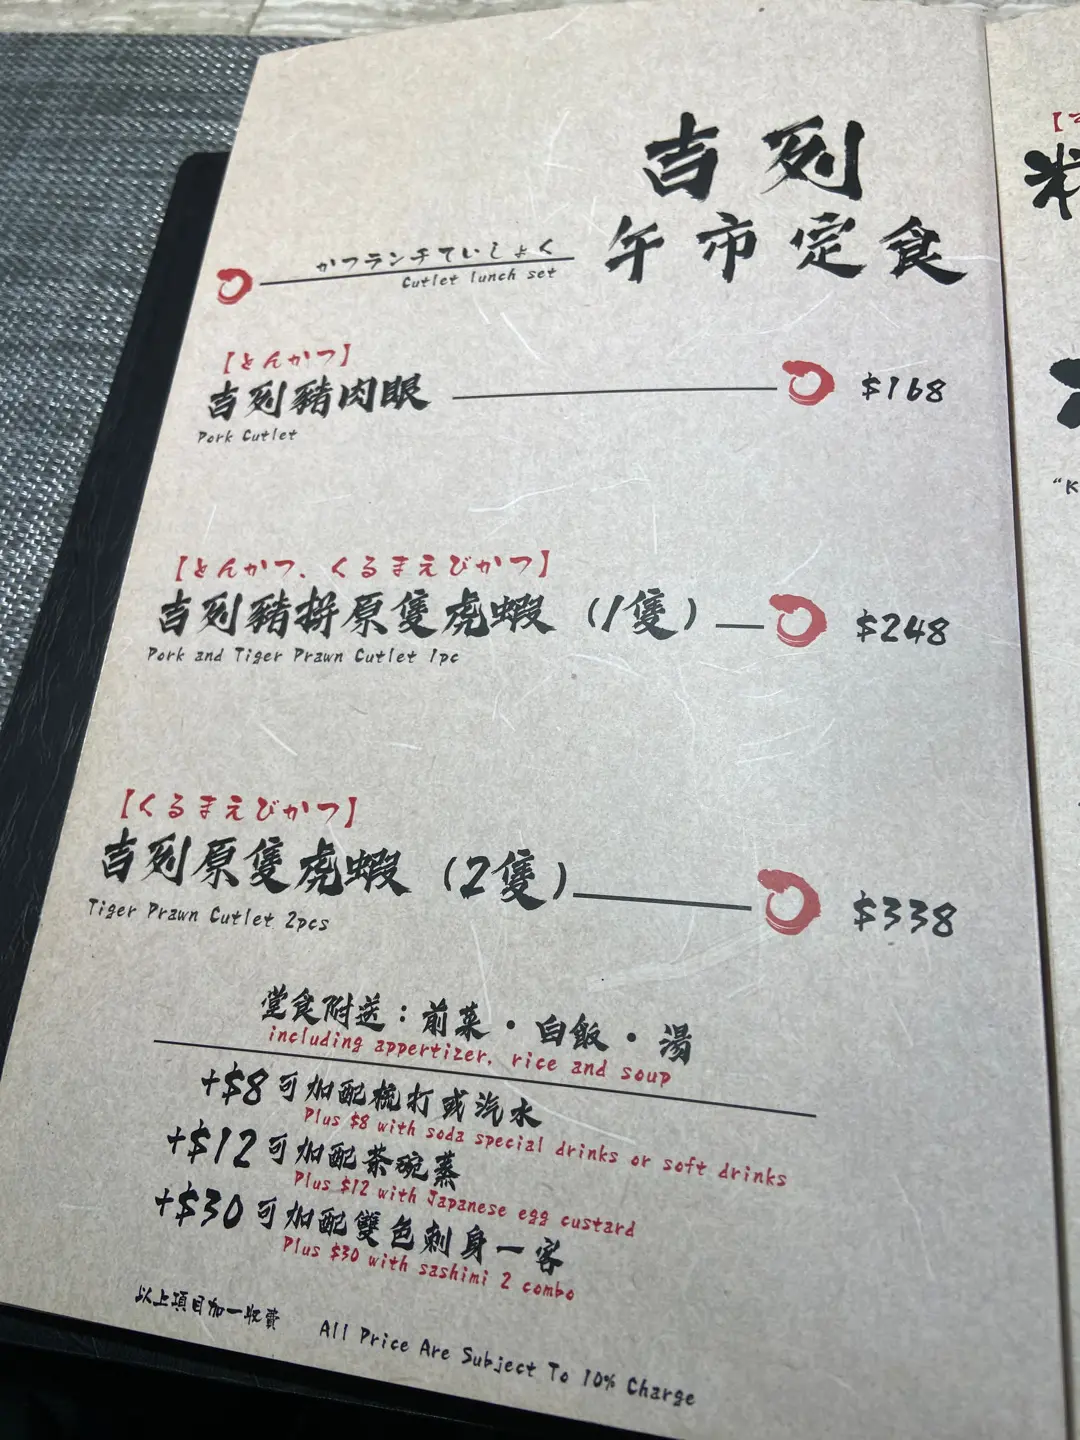 吉列
午市定食
かつランチていしょく
Cutlet lunch set
【とんかつ】
吉列豬肉眼
$168
Pork Cutlet
【とんかつ、くるまえびかつ】
吉列豬拼原隻虎蝦（1隻）
$248
Pork and Tiger Prawn Cutlet 1pc
【くるまえびかつ】
吉列原隻虎蝦（2隻）
$338
Tiger Prawn Cutlet 2pcs
堂食附送：前菜・白飯・湯
including appertizer, rice and soup
+$8可加配梳打或汽水
Plus $8 with soda special drinks or soft drinks
+$12可加配茶碗蒸
Plus $12 with Japanese egg custard
+$30可加配雙色刺身一客
Plus $30 with sashimi 2 combo
以上項目加一收費
All Price Are Subject To 10% Charge